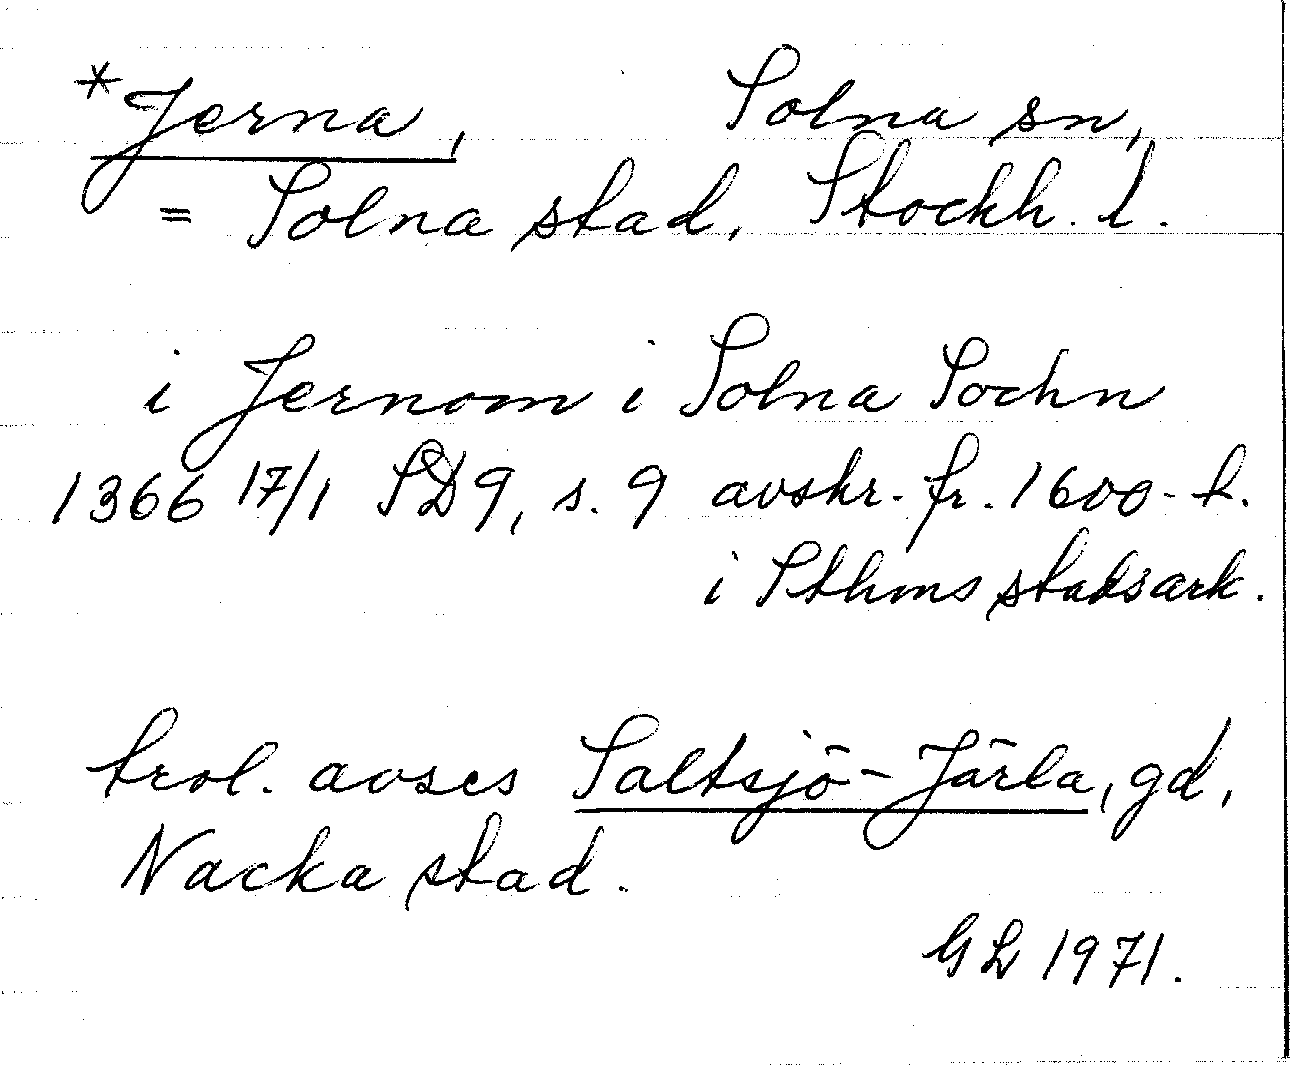 *Jerna, Solna sn,
= Solna stad, Stockh. l.
i Jernom i Solna Sochn
1366 17/1 SD 9, s. 9 avskr. fr. 1600-t.
i Sthms stadsark.
trol. avses Saltsjö-Järla, gd,
Nacka stad.
GL 1971.